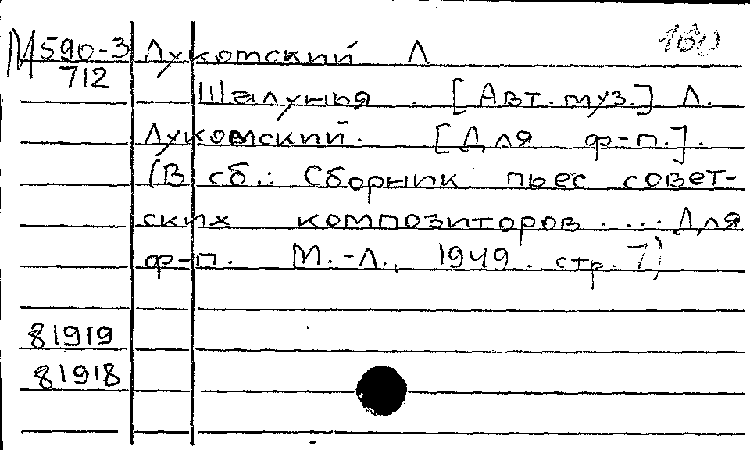 М 590-3 Лукомский Л 160
712
Шалунья. [Авт. муз.] Л.
Лукомский. [Для ф-п.].
(В сб.: Сборник пьес совет-
ских композиторов.... Для
ф-п. М.-Л., 1949. стр. 7)
81919
81918